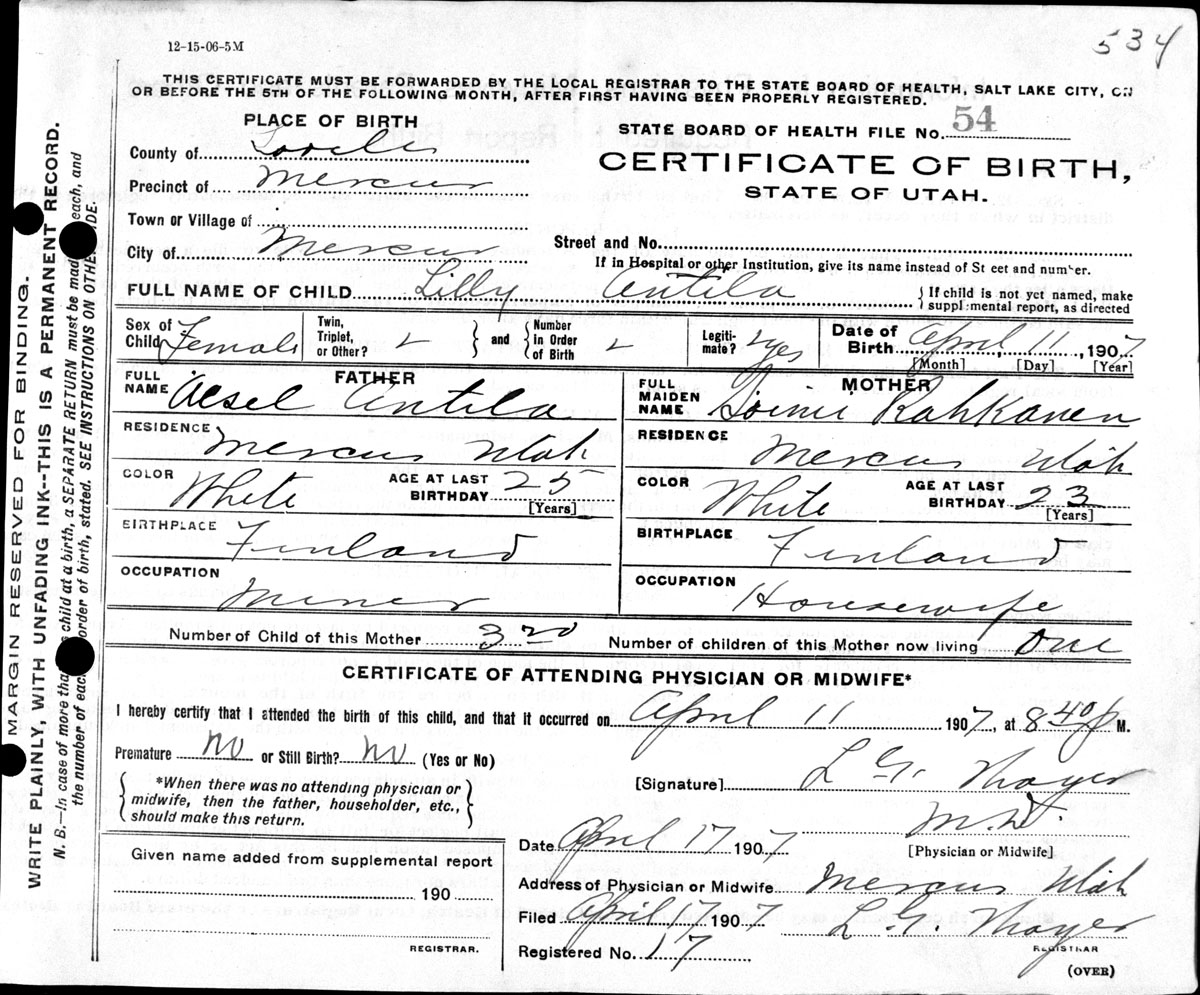 534
12-15-06-5M
THIS CERTIFICATE MUST BE FORWARDED BY THE LOCAL REGISTRAR TO THE STATE BOARD OF HEALTH, SALT LAKE CITY, ON
OR BEFORE THE 5TH OF THE FOLLOWING MONTH, AFTER FIRST HAVING BEEN PROPERLY REGISTERED.
PLACE OF BIRTH
STATE BOARD OF HEALTH FILE No. 54
County of Tooele
CERTIFICATE OF BIRTH,
Precinct of Mercur
STATE OF UTAH.
Town or Village of
Street and No.
City of Mercur
If in Hospital or other Institution, give its name instead of St eet and number.
FULL NAME OF CHILD Lilly Antila
If child is not yet named, make
supplemental report, as directed
Sex of Child Female
Twin, Triplet, or Other?
and
Number in Order of Birth
Legiti-mate? yes
Date of Birth April 11, 1907
[Month] [Day] [Year]
FATHER
FULL NAME Antila
RESIDENCE Mercur Utah
COLOR White
AGE AT LAST BIRTHDAY 25
[Years]
BIRTHPLACE Finland
OCCUPATION Miner
MOTHER
FULL MAIDEN NAME
RESIDENCE Mercur Utah
COLOR White
AGE AT LAST BIRTHDAY 23
[Years]
BIRTHPLACE Finland
OCCUPATION Housewife
Number of Child of this Mother 3 Number of children of this Mother now living One
CERTIFICATE OF ATTENDING PHYSICIAN OR MIDWIFE*
I hereby certify that I attended the birth of this child, and that it occurred on April 11 1907, at 8 40 p M.
Premature No or Still Birth? No (Yes or No)
*When there was no attending physician or
midwife, then the father, householder, etc.,
should make this return.
[Signature] L. G. Thayer
M.D.
[Physician or Midwife]
Date April 17 1907
Address of Physician or Midwife Mercur Utah
Filed April 17 1907 L. G. Thayer
REGISTRAR
Registered No. 17
(OVER)
Given name added from supplemental report
190
REGISTRAR.
MARGIN RESERVED FOR BINDING.
WRITE PLAINLY, WITH UNFADING INK--THIS IS A PERMANENT RECORD.
N. B.—In case of more tha child at a birth, a SEPARATE RETURN must be mad each, and
the number of eac order of birth, stated. SEE INSTRUCTIONS ON OTHE IDE.